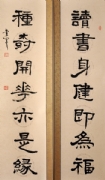 讀書身健即為福
種奇開花亦是緣